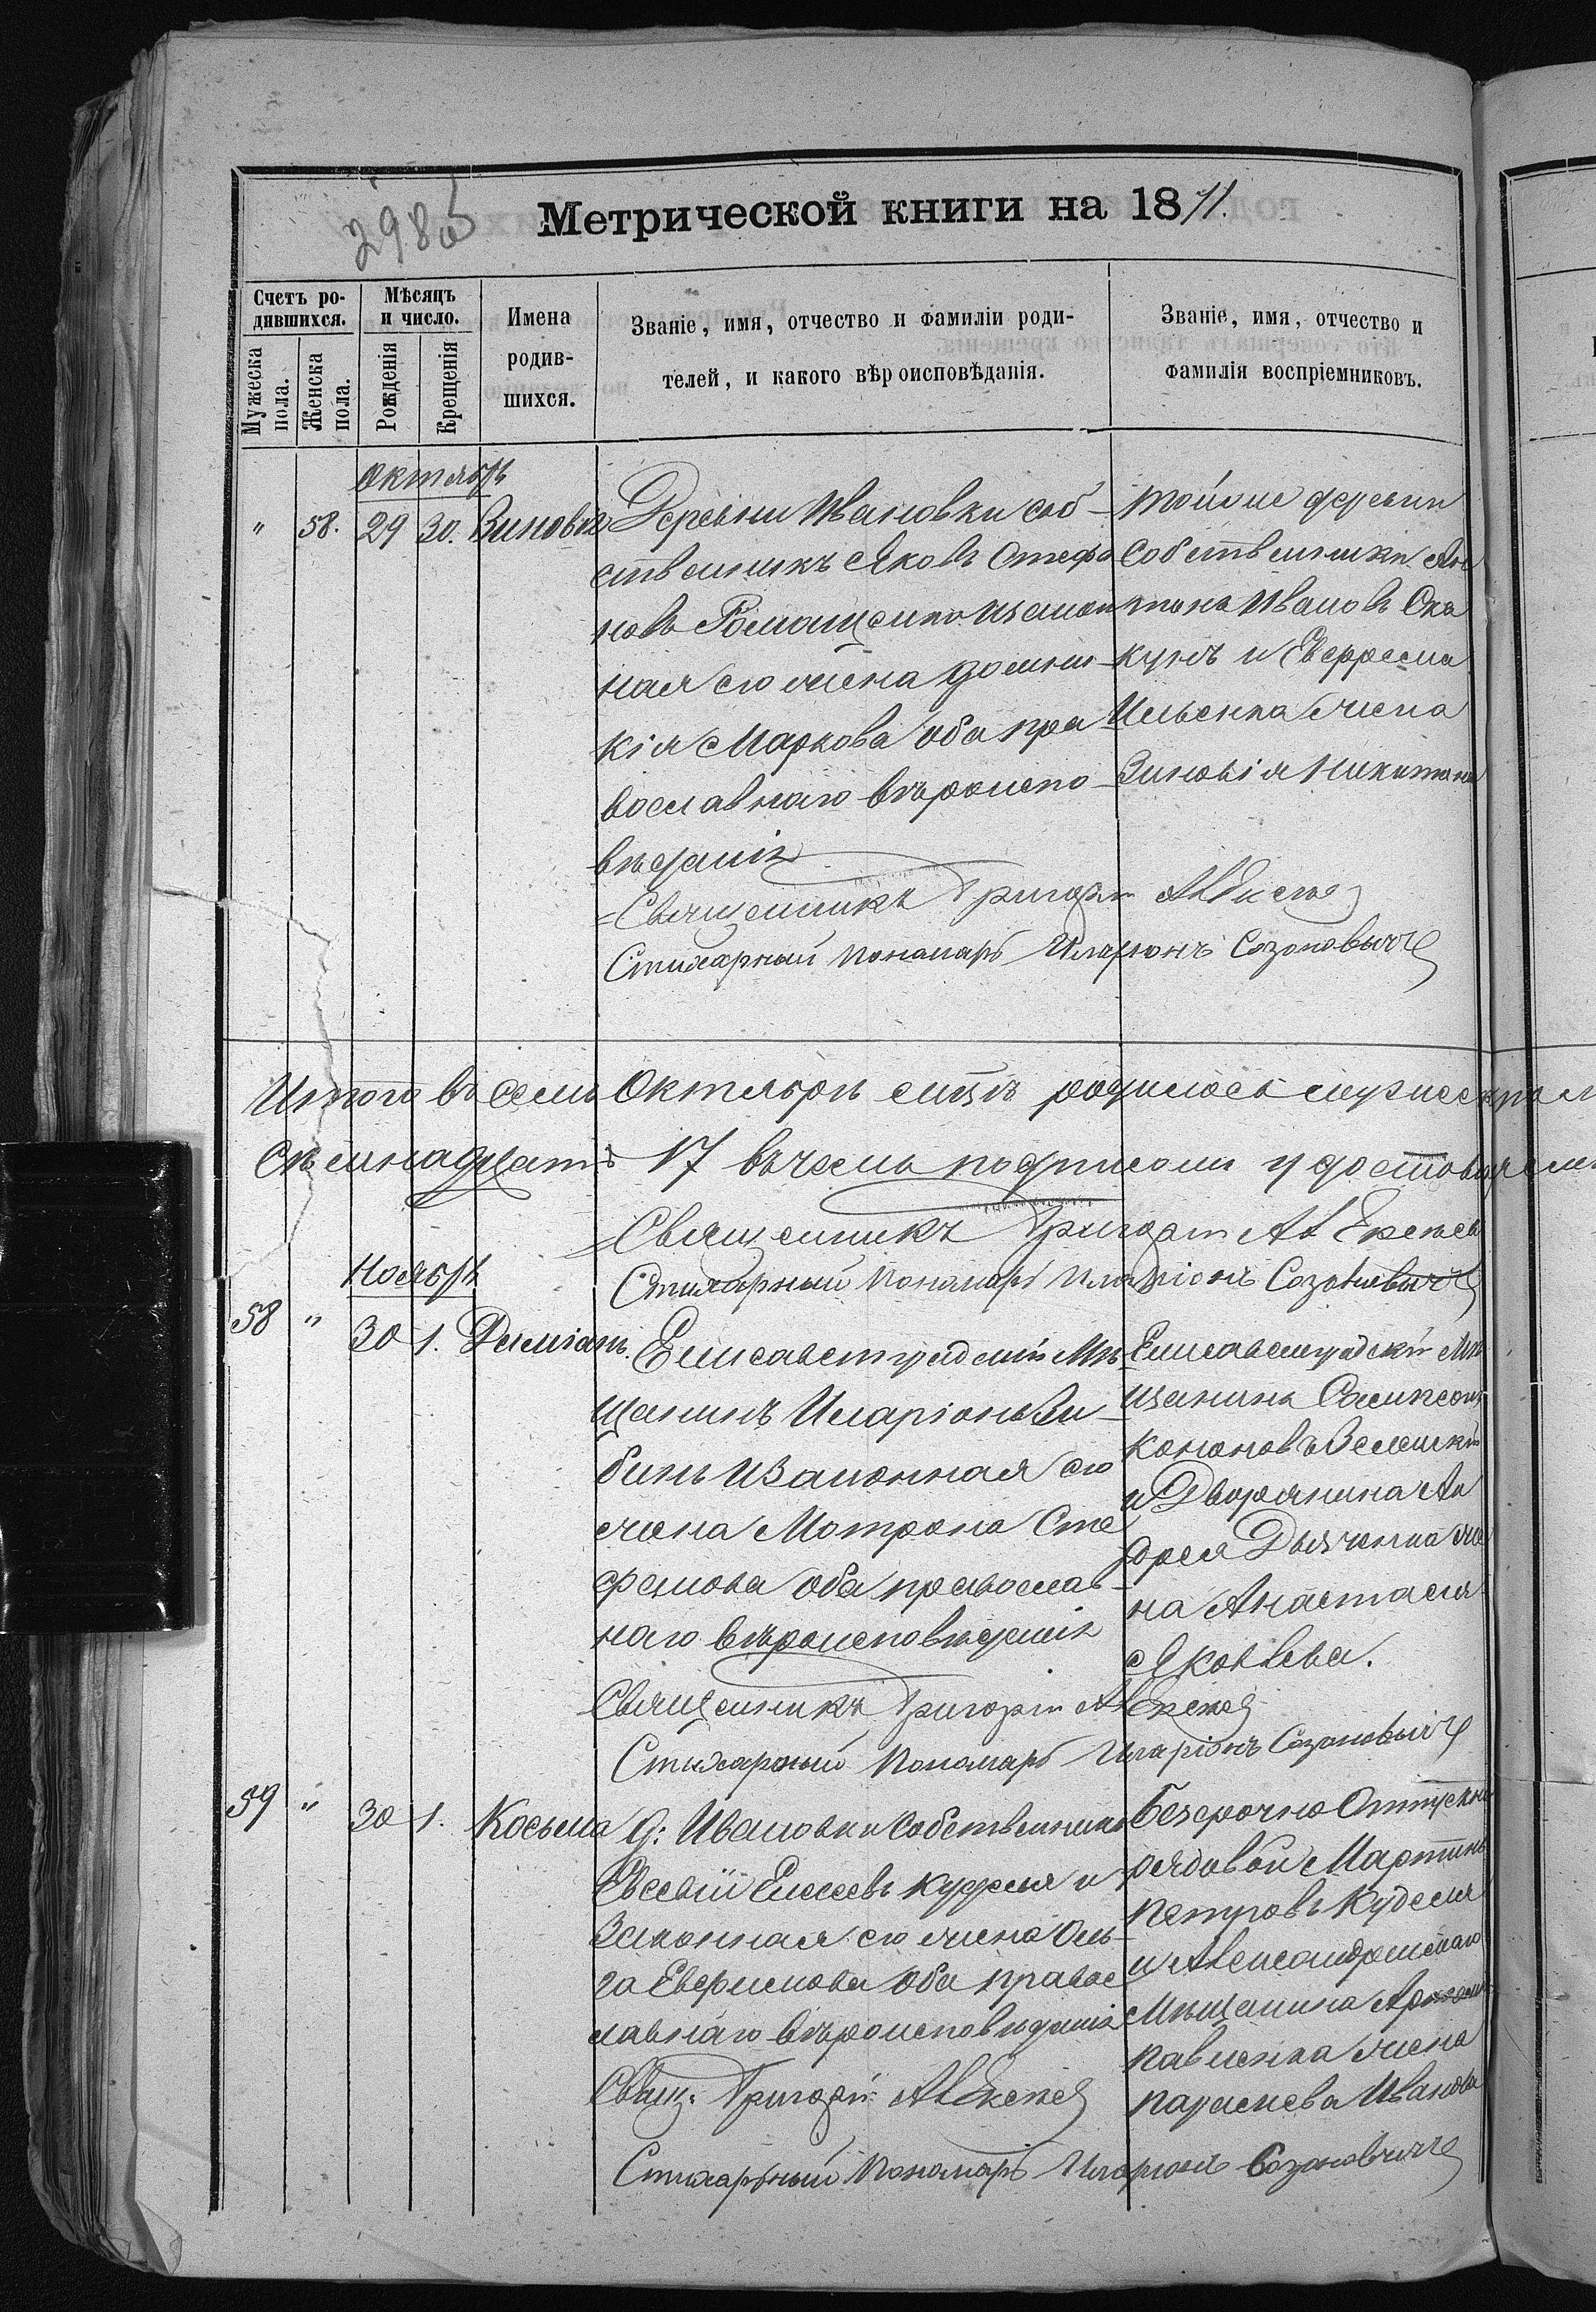 298об
Метрической книги на 1871.
Счетъ ро-
дившихся.
Мужеска
пола.
Женска
пола.
Мѣсяцъ
и число.
Рожденія
Крещенія
Имена
родив-
шихся.
Званіе, имя, отчество и фамиліи роди-
телей, и какого вѣроисповѣданія.
Званіе, имя, отчество и
фамилія воспріемниковъ.
Октябрь
" 58. 29 30. Зиновія
Деревни Ивановки соб-
ственникъ Яковъ Стефа
новъ Ромащенко изакон
ная его жена Домни-
кія Маркова оба пра
вославнаго вѣроиспо-
вѣданія
тойже деревни
Собственники Ан
тонъ Ивановъ Ска
кунъ и Евфреми
Ильенка жена
Зиновія Никитина
Священникъ Григорій
Стихарный Пономарь Иларіонъ Созоновичъ
Итого въ семъ Октябрѣ мѣсяцѣ родилось мужеска
Семнадцать 17 въчемъ подписомъ удостовѣряемъ
Священникъ Григорій
Стихарный Пономарь Иларіонъ Созоновичъ
Ноябрь
58 " 30 1. Деміанъ.
Елисаветградскій Мѣ
щанинъ Иларіонъ Зи-
бинъ изаконная его
жена Матрона Сте
фанова оба православ-
наго вѣроисповѣданія
Елисаветградскій Мѣ
щанинъ Сампсонъ
Кононовъ
и Дворянина Ан
дрея Дьяченка же
на Анастасія
Яковлева.
Священникъ Григорій
Стихарный Пономарь Иларіонъ Созоновичъ
59 " 30 1. Косьма
д: Ивановки Собственникъ
Евсевій Елисеевъ Куделя и
Законная его жена Оль-
га Евфимова оба правос
лавнаго вѣроисповѣданія
Безсрочно Отпускн
рядовой Мартинъ
Петровъ Куделя
и Александрійскаго
Мѣщанина
Павленка жена
Параскева Иванова
Свящ: Григорій
Стихарный Пономарь Иларіонъ Созоновичъ